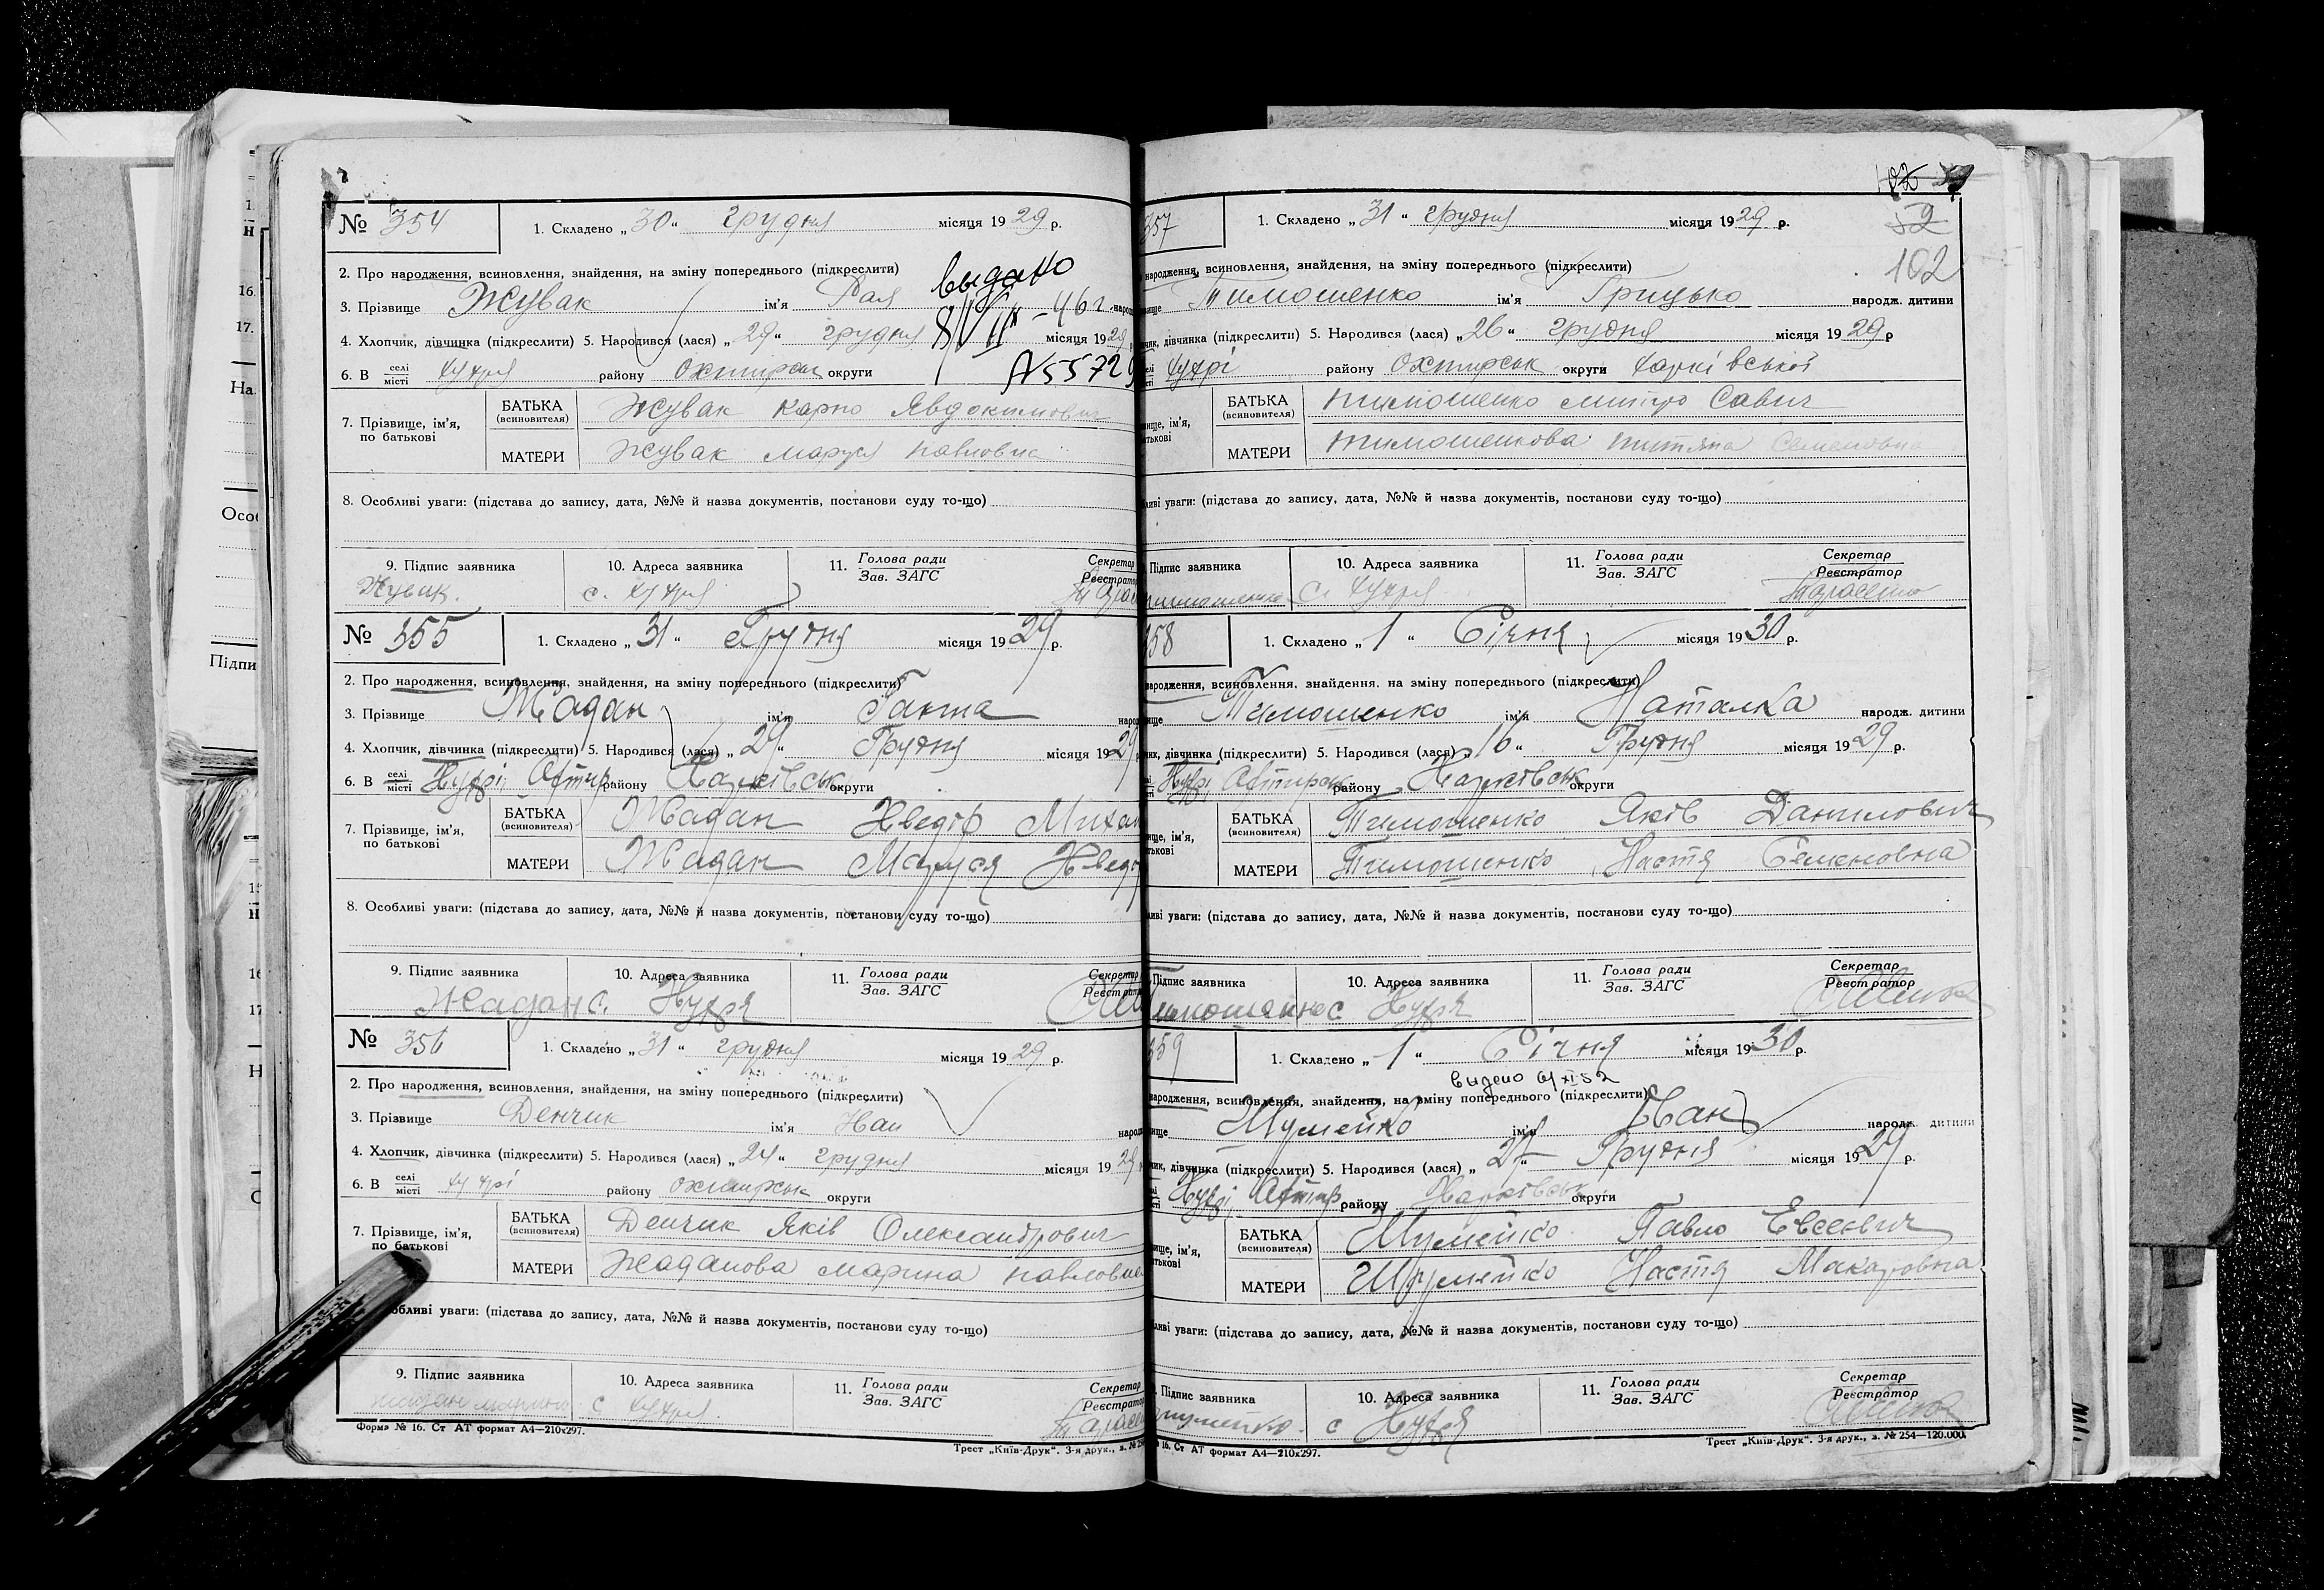 № 354
1. Складено „30“ грудня місяця 1929 р.
2. Про народження, всиновлення, знайдення, на зміну попереднього (підкреслити)
видано
3. Прізвище Жувак ім'я Рая
8/IX-46 г.
4. Хлопчик, дівчинка (підкреслити) 5. Народився (лася) „29“ грудня місяця 1929
6. В селі місті Хухря району Охтирськ округи
7. Прізвище, ім'я, по батькові
БАТЬКА (всиновителя) Жувак Карпо Явдокимович
МАТЕРИ Жувак Маруся Павловна
8. Особливі уваги: (підстава до запису, дата, №№ й назва документів, постанови суду то-що)
9. Підпис заявника 10. Адреса заявника 11. Голова ради Зав. ЗАГС Секретар Реєстратор
Жувак. с. Хухря
№ 355
1. Складено „31“ Грудня місяця 1929 р.
2. Про народження, всиновлення, знайдення, на зміну попереднього (підкреслити)
3. Прізвище Жадан ім'я Ганна
4. Хлопчик, дівчинка (підкреслити) 5. Народився (лася) „29“ Грудня місяця 1929
6. В селі місті Хухрі Охтир району Харківськ округи
7. Прізвище, ім'я, по батькові
БАТЬКА (всиновителя) Жадан Хведір Михай
МАТЕРИ Жадан Маруся Хведр
8. Особливі уваги: (підстава до запису, дата, №№ й назва документів, постанови суду то-що)
9. Підпис заявника 10. Адреса заявника 11. Голова ради Зав. ЗАГС Секретар Реєстратор
Жадан с. Хухря
№ 356
1. Складено „31“ грудня місяця 1929 р.
2. Про народження, всиновлення, знайдення, на зміну попереднього (підкреслити)
3. Прізвище Денчик ім'я Иван
4. Хлопчик, дівчинка (підкреслити) 5. Народився (лася) „24“ грудня місяця 1929
6. В селі місті Хухрі району Охтирськ округи
7. Прізвище, ім'я, по батькові
БАТЬКА (всиновителя) Денчик Яків Олександрович
МАТЕРИ Жаданова Марина Павловна
обливі уваги: (підстава до запису, дата, №№ й назва документів, постанови суду то-що)
9. Підпис заявника 10. Адреса заявника 11. Голова ради Зав. ЗАГС Секретар Реєстратор
с Хухря
Форма № 16. Ст АТ формат А4—210х297.
Трест „Київ-Друк“. 3-я друк., з. №
102
52
102
357
1. Складено „31“ грудня місяця 1929 р.
народження, всиновлення, знайдення, на зміну попереднього (підкреслити)
Тимошенко ім'я Грицько народж. дитини
дівчинка (підкреслити) 5. Народився (лася) „26“ грудня місяця 1929 р
Хухрі району Охтирськ округи Харківської
БАТЬКА (всиновителя) Тимошенко Митро Савич
МАТЕРИ Тимошенкова Титяна Семеновна
уваги: (підстава до запису, дата, №№ й назва документів, постанови суду то-що)
Підпис заявника 10. Адреса заявника 11. Голова ради Зав. ЗАГС Секретар Реєстратор
Тимошенко С. Хухря Тарасенко
358
1. Складено „1“ Січня місяця 1930 р.
народження, всиновлення, знайдення, на зміну попереднього (підкреслити)
Тимошенко ім'я Наталка народж. дитини
дівчинка (підкреслити) 5. Народився (лася) „16“ Грудня місяця 1929 р.
Хухрі Охтирськ району Харківськ округи
БАТЬКА (всиновителя) Тимошенко Яків Данилович
МАТЕРИ Тимошенко Настя Семеновна
уваги: (підстава до запису, дата, №№ й назва документів, постанови суду то-що)
Підпис заявника 10. Адреса заявника 11. Голова ради Зав. ЗАГС Секретар Реєстратор
Тимошенко с Хухря
359
1. Складено „1“ Січня місяця 1930 р.
народження, всиновлення, знайдення, на зміну попереднього (підкреслити)
Шумейко ім'я Иван народж. дитини
дівчинка (підкреслити) 5. Народився (лася) „27“ Грудня місяця 1929 р.
Хухрі Охтир району Харківськ округи
БАТЬКА (всиновителя) Шумейко Павло Евсеевич
МАТЕРИ Шумейко Настя Макаровна
уваги: (підстава до запису, дата, №№ й назва документів, постанови суду то-що)
Підпис заявника 10. Адреса заявника 11. Голова ради Зав. ЗАГС Секретар Реєстратор
Шумейко. с Хухря
16. Ст АТ формат А4—210х297.
Трест „Київ-Друк“. 3-я друк., з. № 254—120.000.